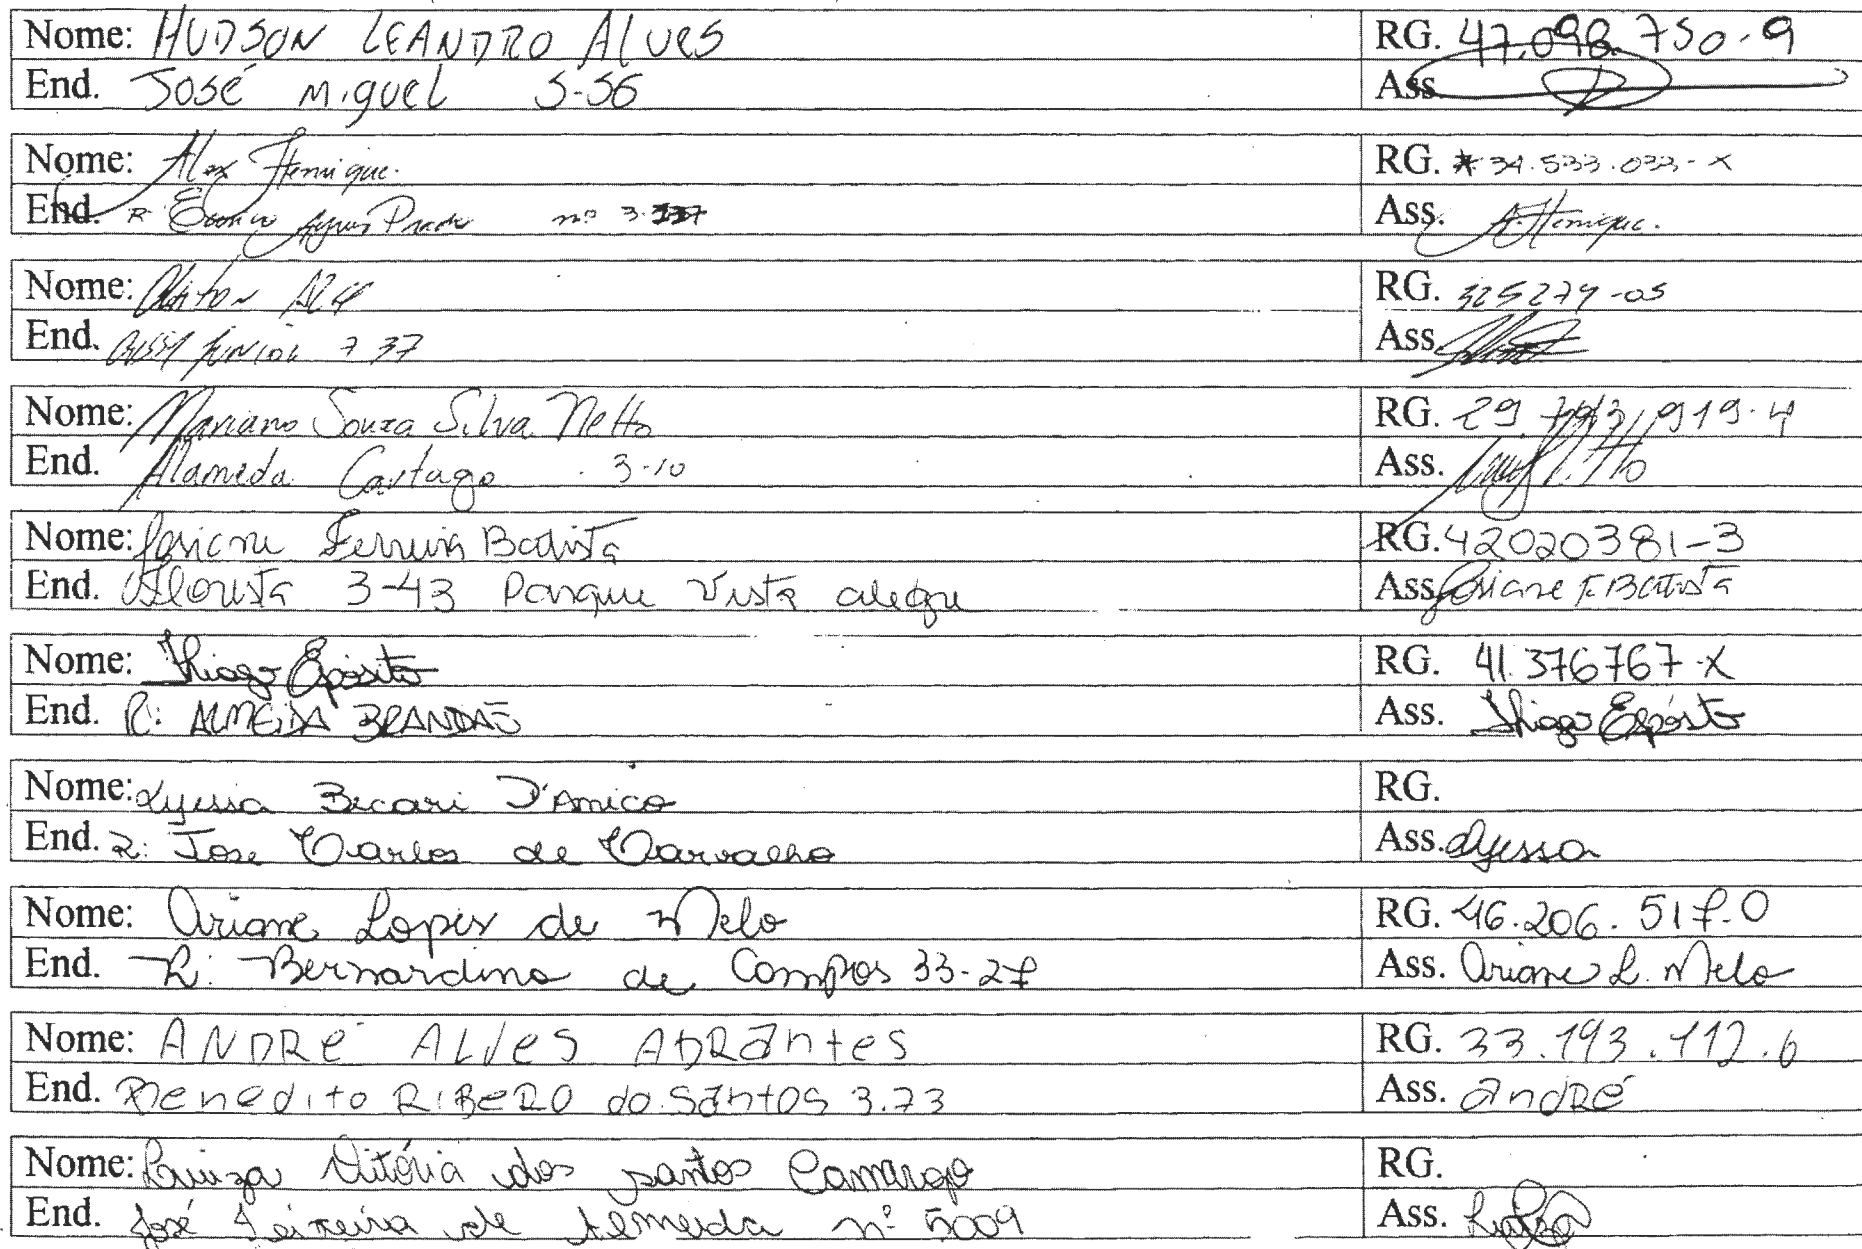 Nome: HUDSON LEANDRO ALVES RG. 47.098.750-9
End. José Miguel 5-56 Ass.
Nome: Alex Henrique. RG. 34.533.033-X
End. R. Prado nº 3. Ass. A. Henrique.
Nome: RG. 325279-05
End. Junior 7 37 Ass.
Nome: Mariano Souza Silva Netto RG. 29 793 919-4
End. Alameda Cartago 3-10 Ass.
Nome: Josiane Ferreira Batista RG. 42020381-3
End. 3-43 Parque Vista alegre Ass. Josiane F. Batista
Nome: Thiago Epósito RG. 41.376767-X
End. R: ALMEIDA BRANDÃO Ass. Thiago Epósito
Nome: Lyessa Becari D'Amico RG.
End. R: Jose Carlos de Carvalho Ass. Lyessa
Nome: Ariane Lopes de Melo RG. 46.206.517-0
End. R: Bernardino de Campos 33-27 Ass. Ariane L. Melo
Nome: ANDRÉ ALVES ABRANTES RG. 33.193.112.6
End. Benedito RIBERO do Santos 3.73 Ass. André
Nome: Luiza Vitória dos santos Camargo RG.
End. José Teixeira de Almeida nº 5009 Ass. Luiza